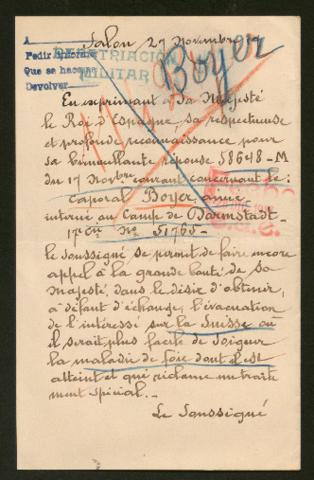 Salon 27 Novembre
A
Pedir informe
Que se haga
Devolver
REPATRIACIÓN
MILITAR
Boyer
En exprimant à Sa Majesté
le Roi d'Espagne, sa respectueuse
et profonde reconnaissance pour
sa bienveillante réponse 58648-M
du 17 Novbre courant concernant le:
Caporal Boyer,
interné au Camp de Darmstadt-
17e Cie No 51765-
le soussigné se permet de faire encore
appel à la grande bonté de Sa
Majesté, dans le désir d'obtenir,
à défaut d'échange, l'évacuation
de l'intéressé sur la Suisse ou
il serait plus facile de soigner
la maladie de foie dont il est
atteint et qui réclame un traite
ment spécial.-
Le Soussigné